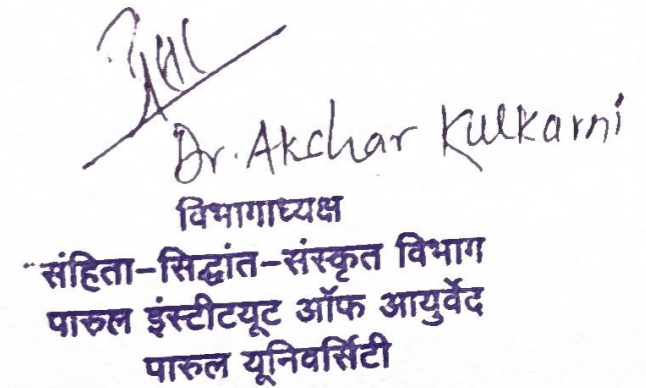 Dr. Akchar Kulkarni
विभागाध्यक्ष
संहिता-सिद्धांत-संस्कृत विभाग
पारुल इंस्टीटयूट ऑफ आयुर्वेद
पारुल यूनिवर्सिटी